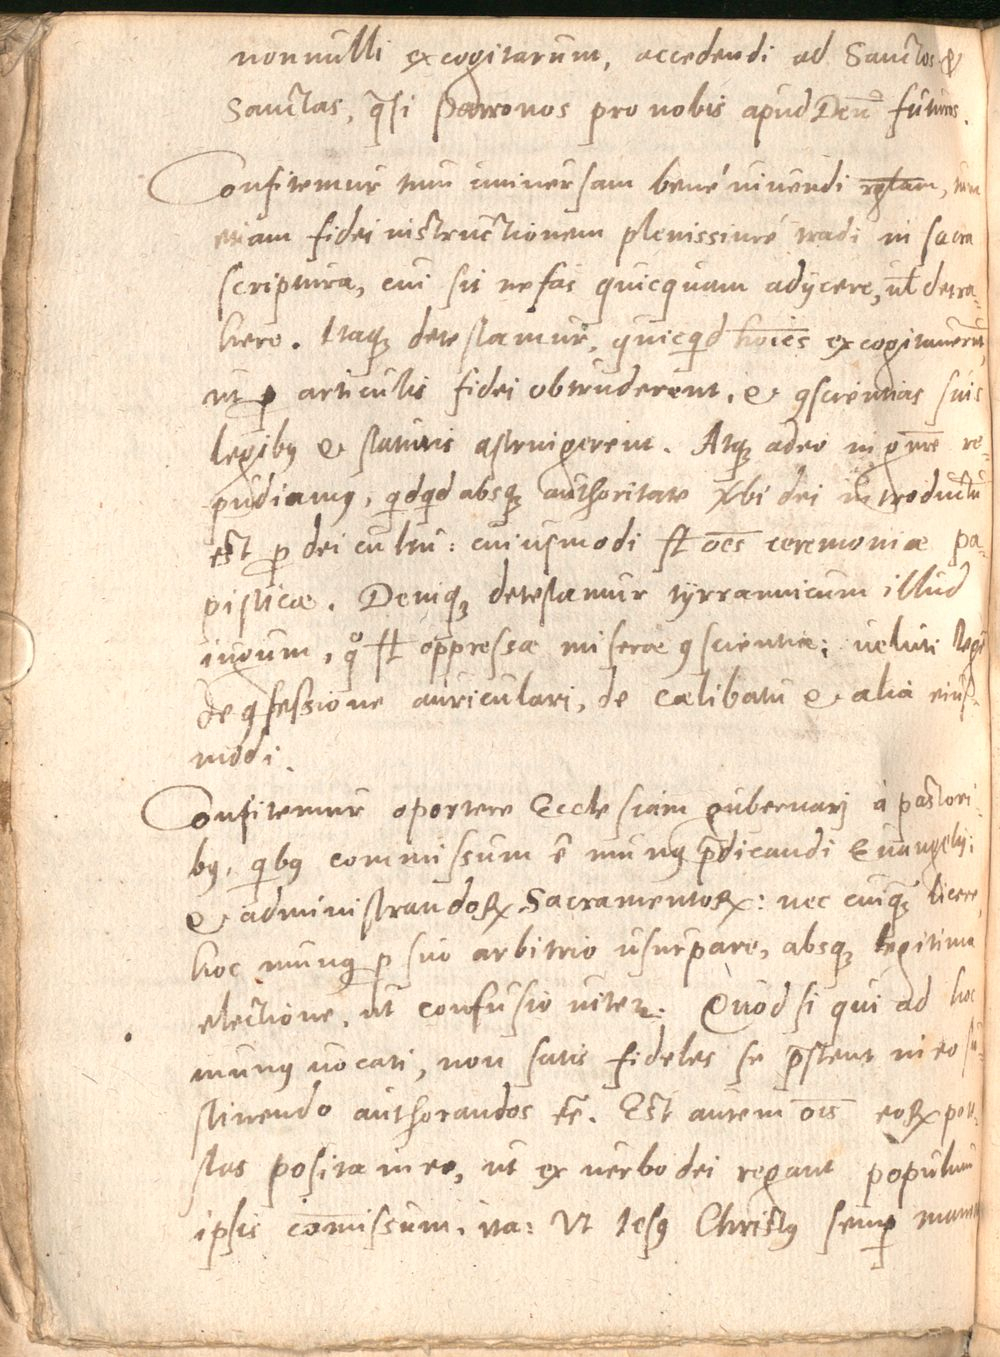 nonnulli excogitarunt, accedendi ad Sanctos &
Sanctas, q̄si Patronos pro nobis apud Deū futuros.
Confitemur tum universam bené vivendi rglam, tum
etiam fidei instructionem plenissimé tradi in sacra
scriptura, cui sit nefas quicquam adijcere, ul detra-
here. Itaqꝫ detestamur, quicqd hoīēs excogitaverūt,
ut ꝓ articulis fidei obtruderent, & ꝯscientias suis
legibꝰ & statutis ꝯstringerent. Atqꝫ adeo in gn̄re re-
pudiamꝰ, qdqd absqꝫ authoritate Vbi dei introductū
est ꝓ dei cultu: cuiusmodi st oēs ceremoniæ pa-
pisticæ. Deniqꝫ detestamur tyrrannicum illud
iugum, qͦ st oppressæ miseræ ꝯscientiæ; veluti legē
de ꝯfessione auriculari, de cælibatu & alia eius-
modi.
Confitemur oportere Ecclesiam gubernarj à pastori-
bꝰ, qibꝰ commissum ē munꝰ p̄dicandi Evangelij;
& administrandoꝝ Sacramentoꝝ: nec cuiqꝫ licere,
hoc munꝰ ꝓ suo arbitrio usurpare, absqꝫ legitima
electione, ut confusio vitetꝛ. Quod si qui ad hoc
munꝰ vocati, non satis fideles se p̄stent in eo su-
stinendo authorandos eē. Est autem oīs eoꝝ pote-
stas posita in eo, ut ex verbo dei regant populum
ipsis com̄issum. ita: Ut Iesꝰ Christꝰ semꝑ